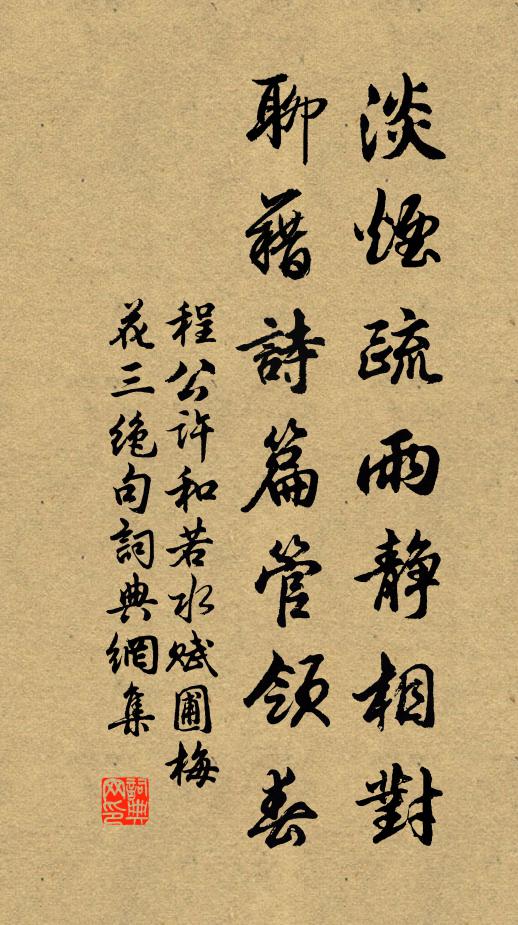 淡煙疏雨靜相對
聊藉詩篇管領春
程公許和若水賦圃梅
花三絕句詞典網集
詞典
网印